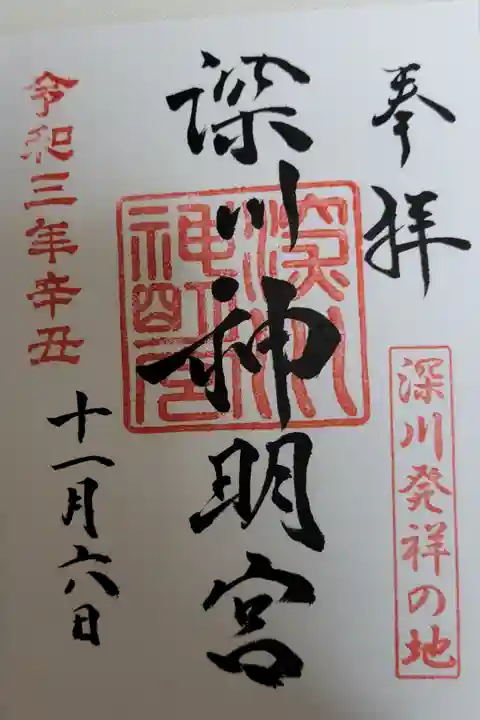 奉拝
深川発祥の地
深川神明宮
深川神明宮
令和三年辛丑
十一月六日